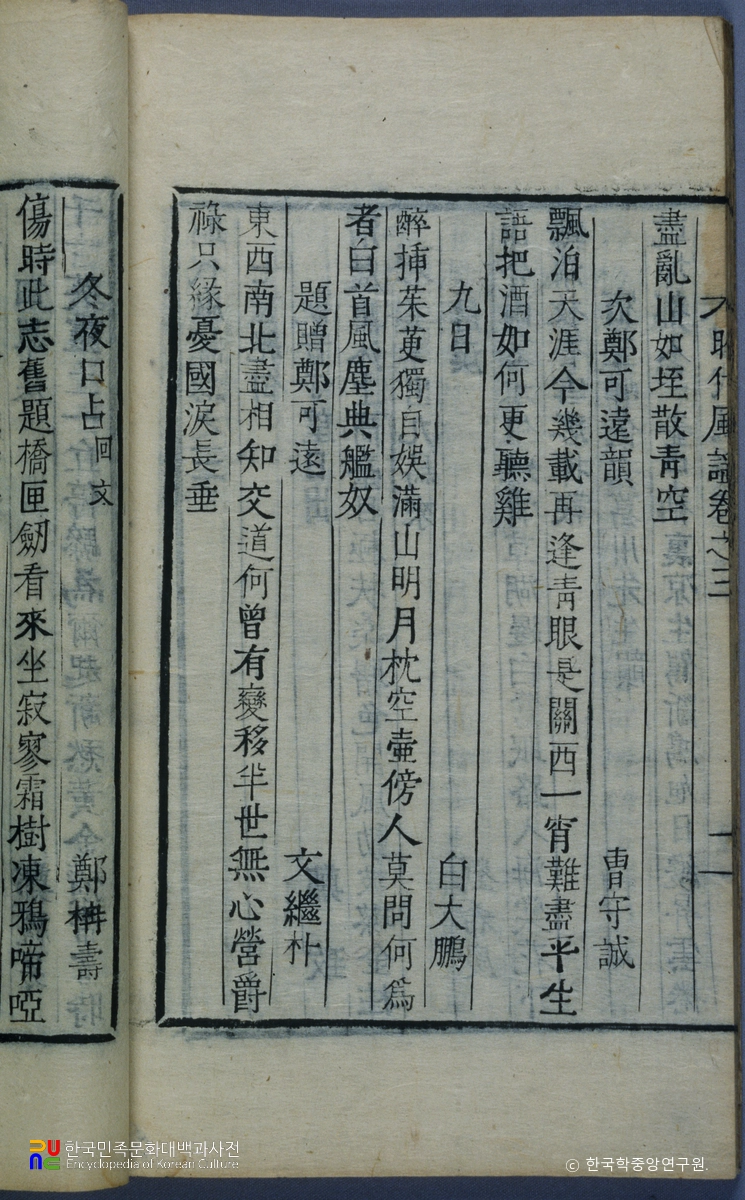 大昭代風謠卷之三 二
盡亂山如垤散靑空
次鄭可遠韻 曺守誠
飄泊天涯今幾載再逢靑眼是關西一宵難盡平生
語把酒如何更聽雞
九日 白大鵬
醉揷茱萸獨自娛滿山明月枕空壷傍人莫問何爲
者白首風塵典艦奴
題贈鄭可遠 文繼朴
東西南北盡相知交道何曾有變移半世無心營爵
祿只緣憂國淚長垂
冬夜口占回文 鄭柟壽
傷時此志舊題橋匣劒看來坐寂寥霜樹凍鴉啼啞
한국민족문화대백과사전
Encyclopedia of Korean Culture
© 한국학중앙연구원.